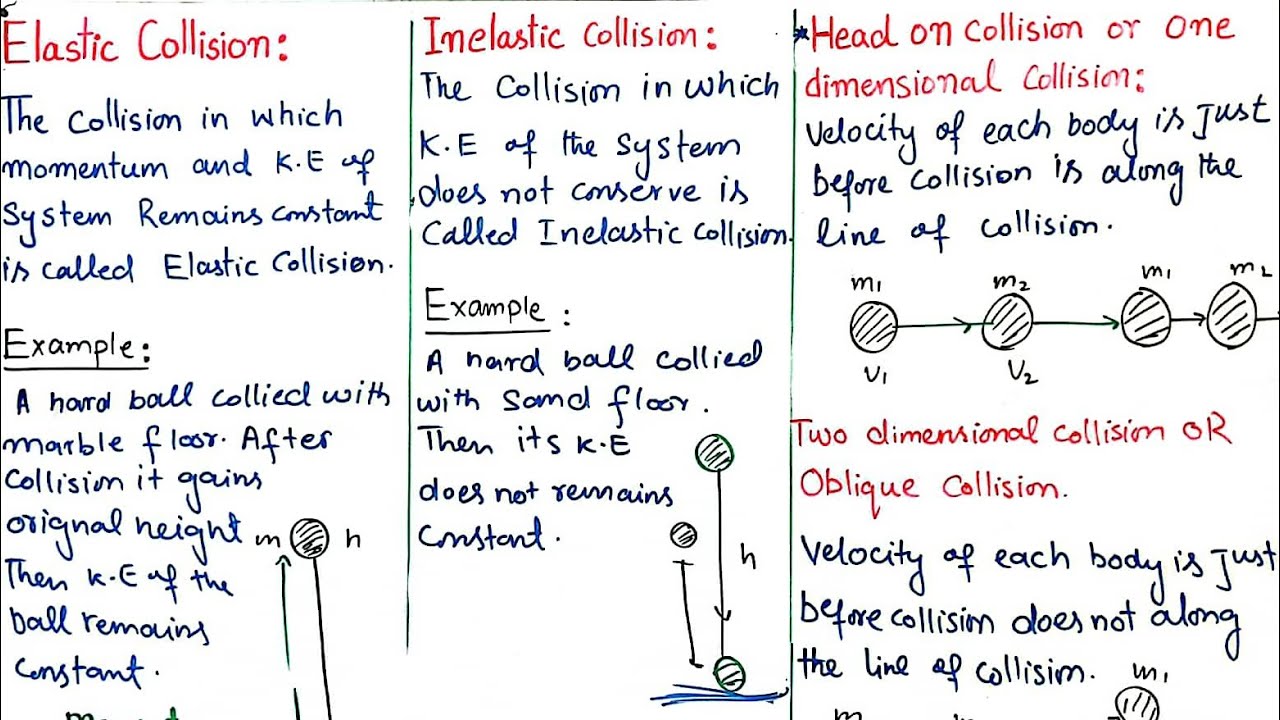 Elastic Collision:
The Collision in which
momentum and K.E of
System Remains constant
is called Elastic Collision.
Example:
A hard ball collied with
marble floor. After
Collision it gains
orignal height
Then K.E of the
ball remains
Constant.
m
h
Inelastic Collision:
The Collision in which
K.E of the System
does not conserve is
Called Inelastic Collision.
Example:
A hard ball collied
with Sand floor.
Then its K.E
does not remains
Constant.
h
*Head on Collision or One
dimensional Collision:
Velocity of each body is Just
before Collision is along the
line of Collision.
m₁ m₂ m₁ m₂
V₁ V₂
Two dimensional Collision OR
Oblique Collision.
Velocity of each body is Just
before Collision does not along
the line of Collision.
m₁